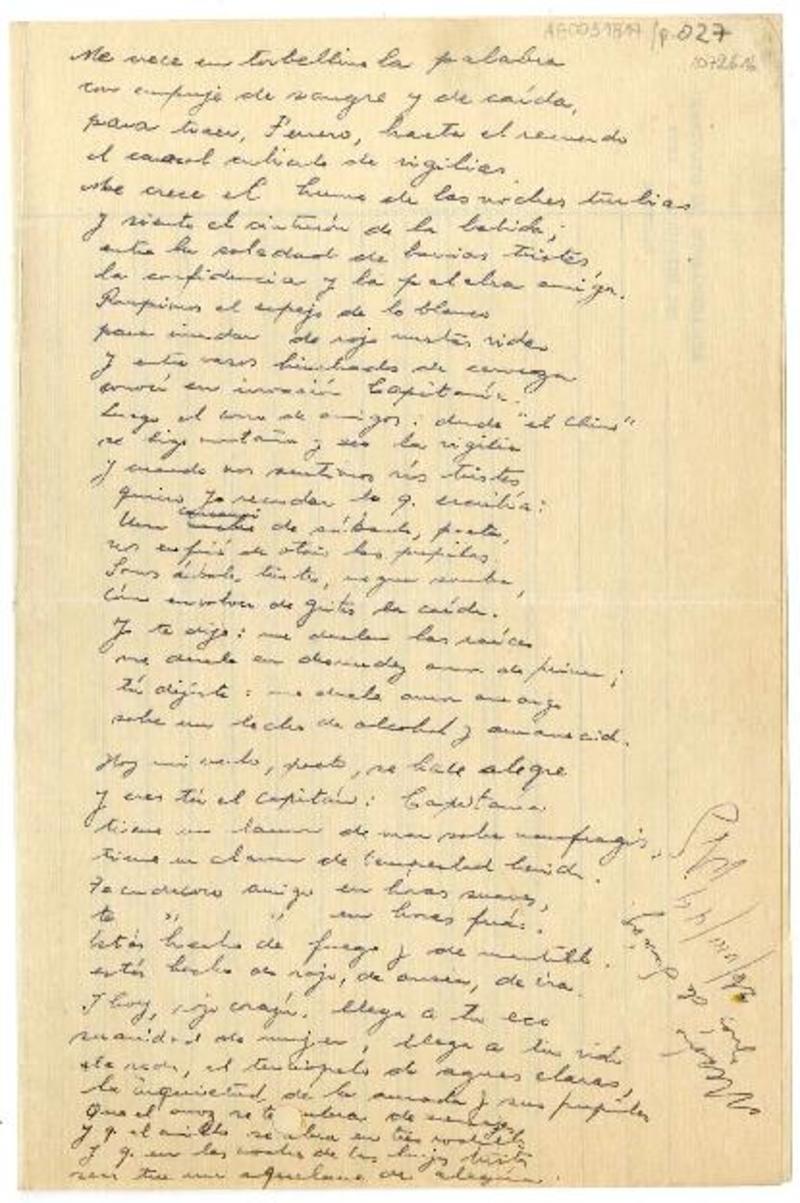 AG0031817/p.027
1072616
Me crece en torbellino la palabra
con empuje de sangre y de caída,
para traer, Ferrero, hasta el recuerdo
el caracol de vigilias
Me crece el humo de las noches turbias
y siento el cinturón de la bebida;
entre la soledad de barrios tristes
la confidencia y la palabra amiga.
Rompimos el espejo de lo blanco
para inundar de rojo nuestras vidas
y entre vasos hinchados de cerveza
conocí en invasión Capitanía.
Luego el coro de amigos: desde "el Chino"
se hizo montaña y eco la vigilia
y cuando nos sentimos más tristes
quiero yo recordar lo q. escribía:
Una de sábado, poeta,
nos enfrió de otoño las pupilas
Somos árbol triste, negra sombra,
de gritos la caída.
Yo te dije: me duelen las raíces
me duele en desnudez amor de prima;
tú dijiste: me duele amor amargo
sobre un lecho de alcohol y amanecida.
Hoy mi verso, poeta, se hace alegre
y eres tú el capitán: Capitanía
tiene un clamor de mar sobre naufragios,
tiene un clamor de tempestad herida.
Te amigo en horas suaves,
te " " en horas frías.
Estás hecho de fuego y de martillo.
estás hecho de rojo, de ansia, de ira.
Y hoy, rojo corazón, llega a tu eco
suavidad de mujer, llega a tu vida
la seda, el terciopelo de aguas claras,
la inquietud de la amada y sus pupilas
Que el amor se te cubra de
y q. el anillo se abra en tres
y q. en las noches de los hijos tristes
sea tu una de alegría.
26/VIII/49